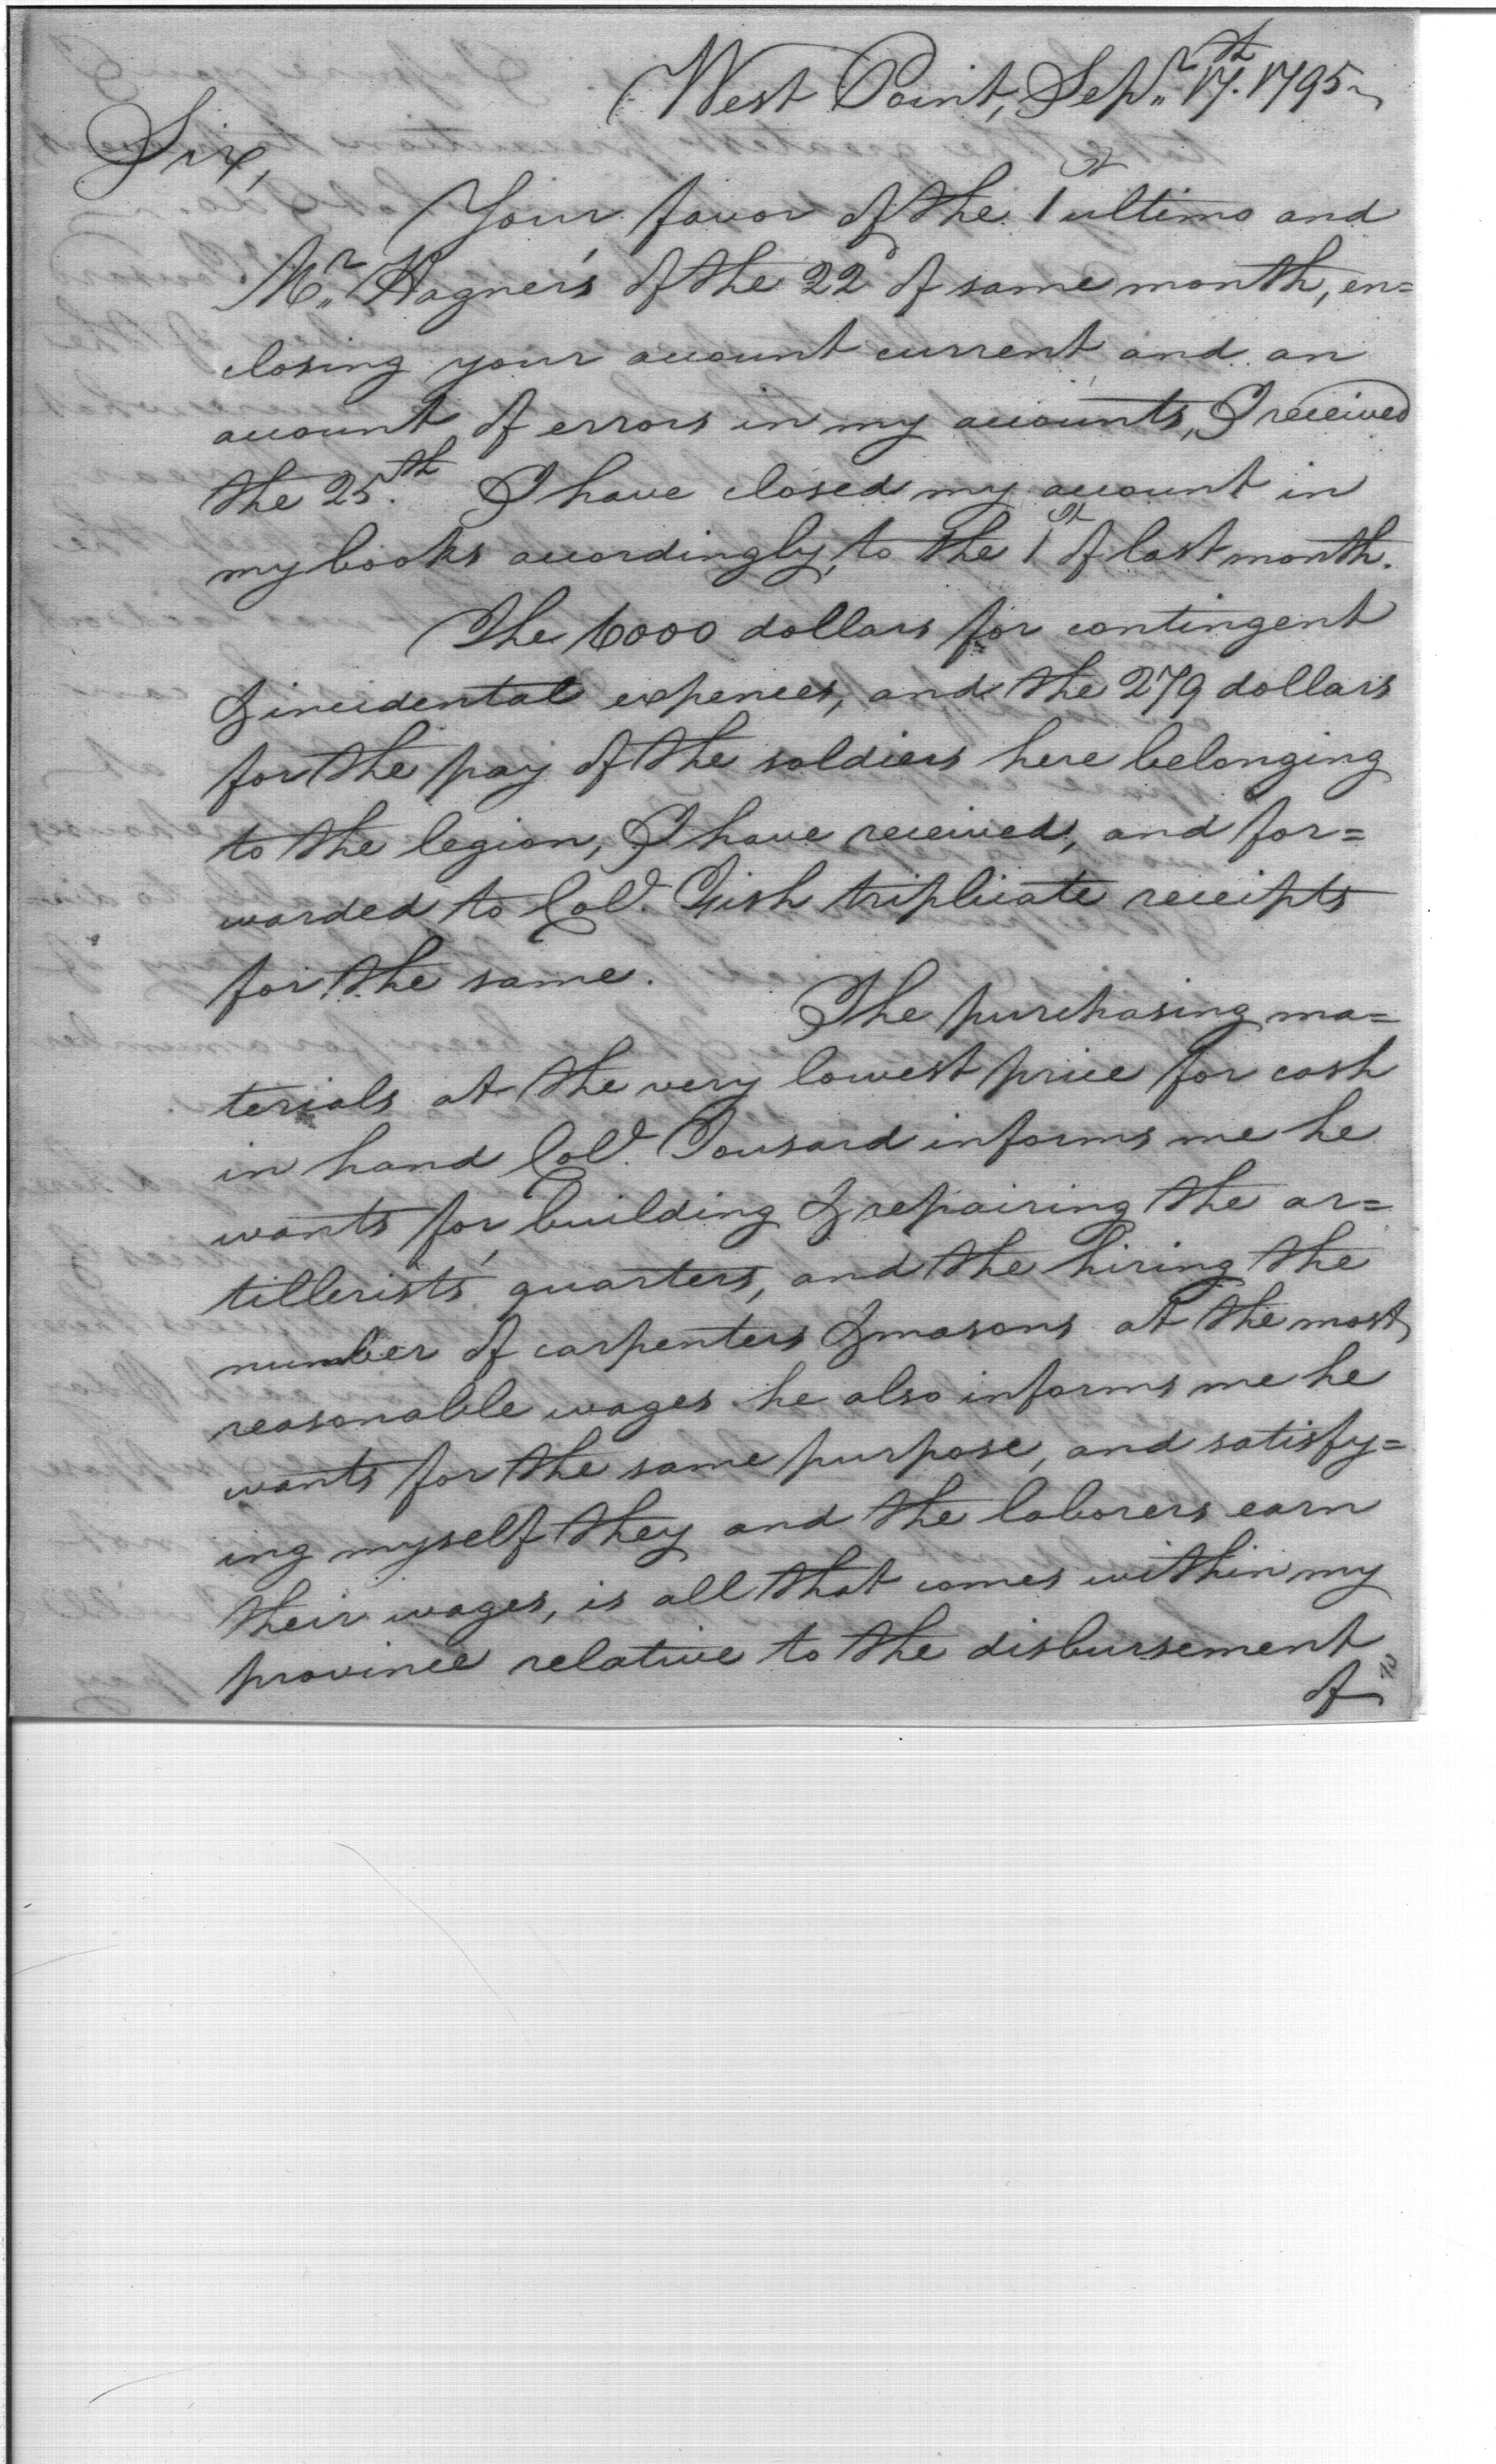 West Point, Sepr. 17th. 1795
Sir,
Your favor of the 1st ultimo and
Mr. Hagner's of the 22d of same month, en=
closing your account current and an
account of errors in my accounts, I received
the 25th. I have closed my account in
my books accordingly, to the 1st of last month.
The 6000 dollars for contingent
& incidental expences, and the 279 dollars
for the pay of the soldiers here belonging
to the legion, I have received, and for=
warded to Col. triplicate receipts
for the same.
The purchasing ma=
terials at the very lowest price for cash
in hand Col. Tousard informs me he
wants for building & repairing the ar=
tillerists' quarters, and the hiring the
number of carpenters & masons at the most
reasonable wages he also informs me he
wants for the same purpose, and satisfy=
ing myself they and the laborers earn
their wages, is all that comes within my
province relative to the disbursement
of